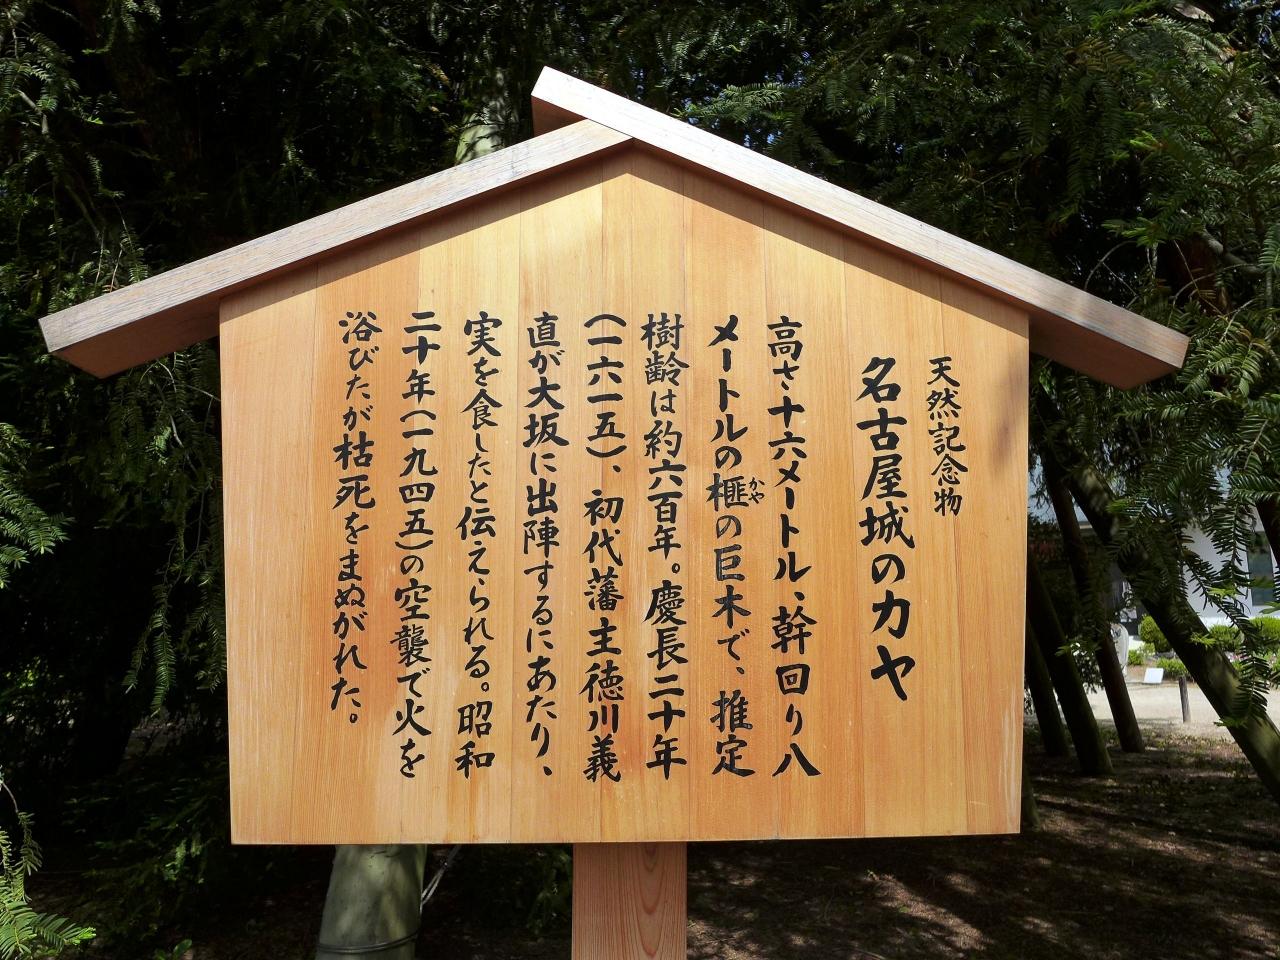 天然記念物
名古屋城のカヤ
高さ十六メートル、幹回り八
メートルの榧かやの巨木で、推定
樹齢は約六百年。慶長二十年
（一六一五）、初代藩主徳川義
直が大坂に出陣するにあたり、
実を食したと伝えられる。昭和
二十年（一九四五）の空襲で火を
浴びたが枯死をまぬがれた。